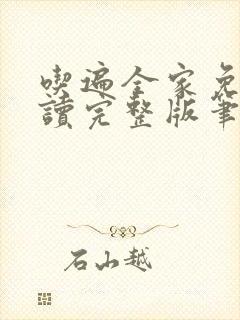 喫遍全家免
讀完整版筆
石山越